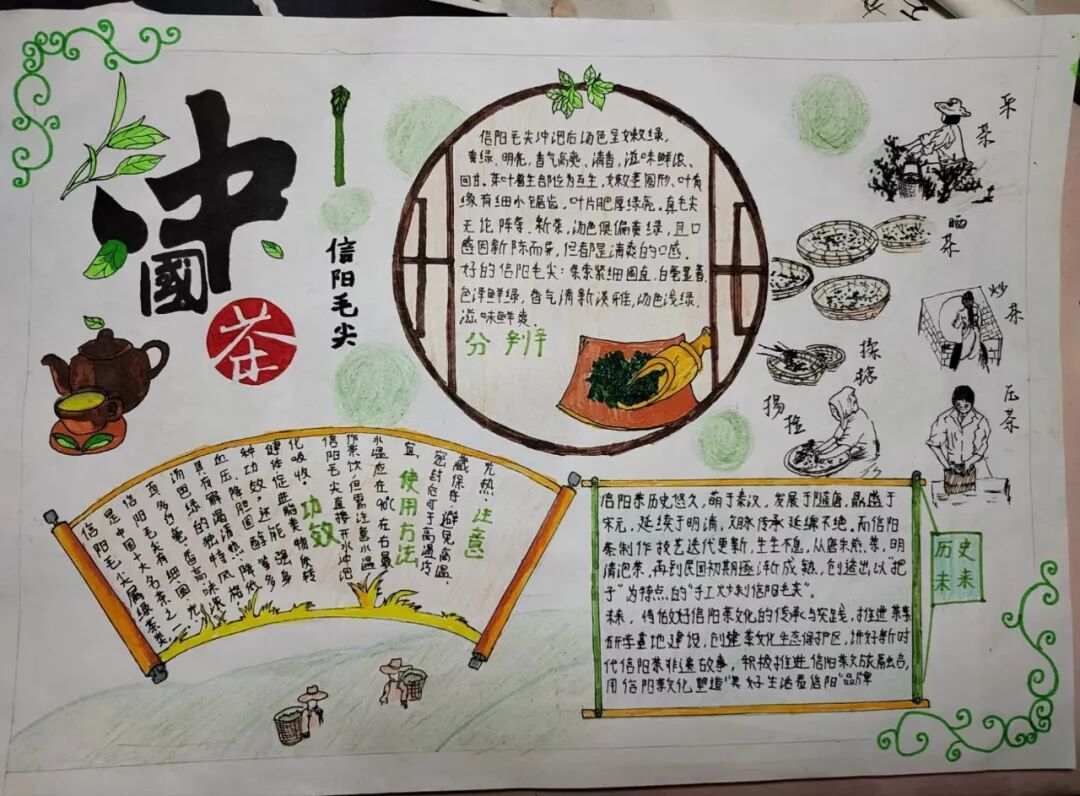 中
國
茶
信阳毛尖
信阳毛尖冲泡后汤色呈嫩绿,
黄绿,明亮,香气高爽、清香,滋味鲜浓、
回甘。茶叶着生部位为互生,嫩茎圆形、叶有
缘有细小锯齿,叶片肥厚绿亮。真毛尖
无论陈茶、新茶,汤色俱偏黄绿,且口
感因新陈而异,但都是清爽的口感。
好的信阳毛尖:条索紧细圆直,白毫显著,
色泽鲜绿,香气清新淡雅,汤色浅绿,
滋味鲜爽。
分辨
采茶
晒茶
炒茶
揉捻
压茶
拣
信阳毛尖属绿茶类,
是中国十大名茶之一
信阳毛尖有细、圆、光、
直、多白毫、香高、味浓、
汤色绿的独特风格,
具有解渴清热、降低
血压、降胆固醇等多
种功效,还能强身
健体,促进脂类物质转
化吸收。
功效
信阳毛尖直接开水冲泡
作茶饮,但需注意水温,
水温应在90℃左右最
宜。
使用方法
密封后可于高温疗
藏保存,避免高温、
光热。
注意
信阳茶历史悠久,萌于秦汉,发展于隋唐,鼎盛于
宋元,延续于明清,文脉传承延绵不绝。而信阳
茶制作技艺迭代更新,生生不息。从唐末煎茶,明
清泡茶,再到民国初期逐渐成熟,创造出以“把
子”为特点的“手工炒制信阳毛尖”。
未来,将做好信阳茶文化的传承与实践,推进茶集
研学基地建设,创建茶文化生态保护区,讲好新时
代信阳茶非遗故事,积极推进信阳茶文旅融合,
用信阳茶文化塑造“美好生活看信阳”品牌
历史
未来